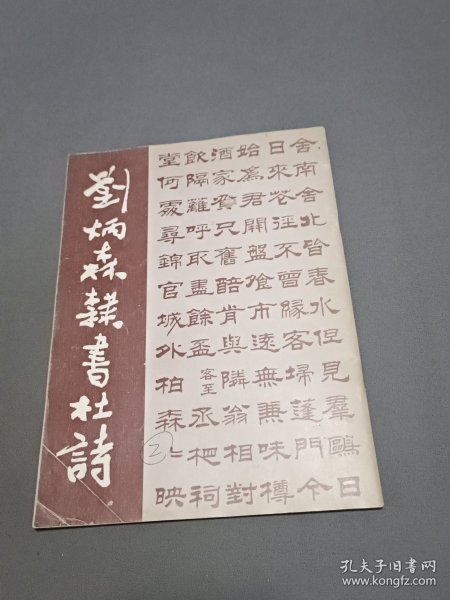 劉炳森隸書杜詩
舍南舍北皆春水但見羣鷗日
日來花徑不曾緣客掃蓬門今
始為君開盤飧市遠無兼味樽
酒家貧只舊醅肯與隣翁相對
飲隔籬呼取盡餘盃客至丞相祠
堂何處尋錦官城外柏森〻映
2
孔夫子旧书网
www.kongfz.com